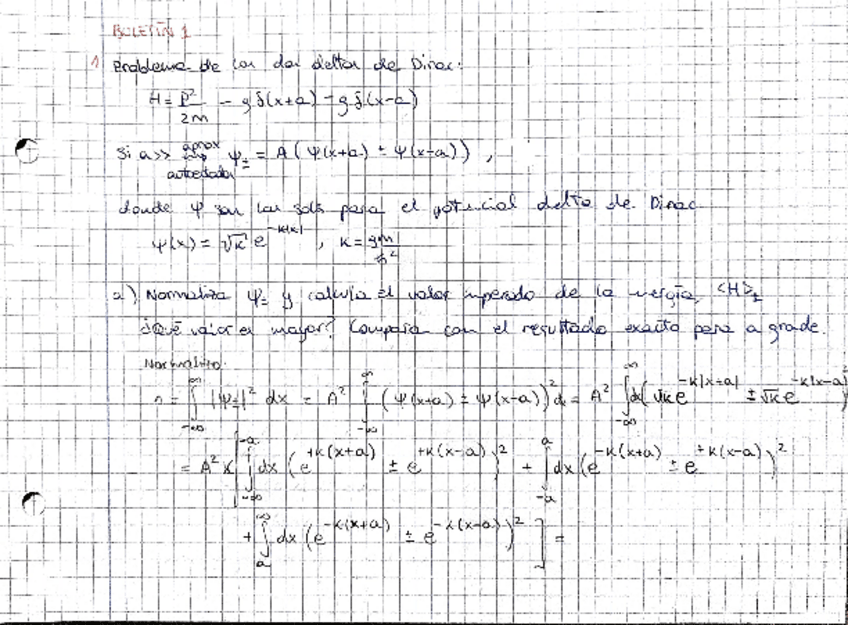 BOLETÍN 1
1 Problema de las dos deltas de Dirac:
H = P²/2m - g δ(x+a) - g δ(x-a)
Si a>> aprox autoestados ψ± = A(ψ(x+a) ± ψ(x-a)),
donde ψ son las sols para el potencial delta de Dirac
ψ(x) = √κ e^{-κ|x|}, κ = gm/ħ²
a) Normaliza ψ± y calcula el valor esperado de la energía, <H>±
¿Qué valor es mayor? Compara con el resultado exacto para a grande.
Normalizo:
1 = ∫_{-∞}^{∞} |ψ±|² dx = A² ∫_{-∞}^{∞} (ψ(x+a) ± ψ(x-a))² dx = A² ∫_{-∞}^{∞} dx (√κ e^{-κ|x+a|} ± √κ e^{-κ|x-a|})²
= A² κ [ ∫_{-∞}^{-a} dx (e^{+κ(x+a)} ± e^{+κ(x-a)})² + ∫_{-a}^{a} dx (e^{-κ(x+a)} ± e^{+κ(x-a)})²
+ ∫_{a}^{∞} dx (e^{-κ(x+a)} ± e^{-κ(x-a)})² ] =